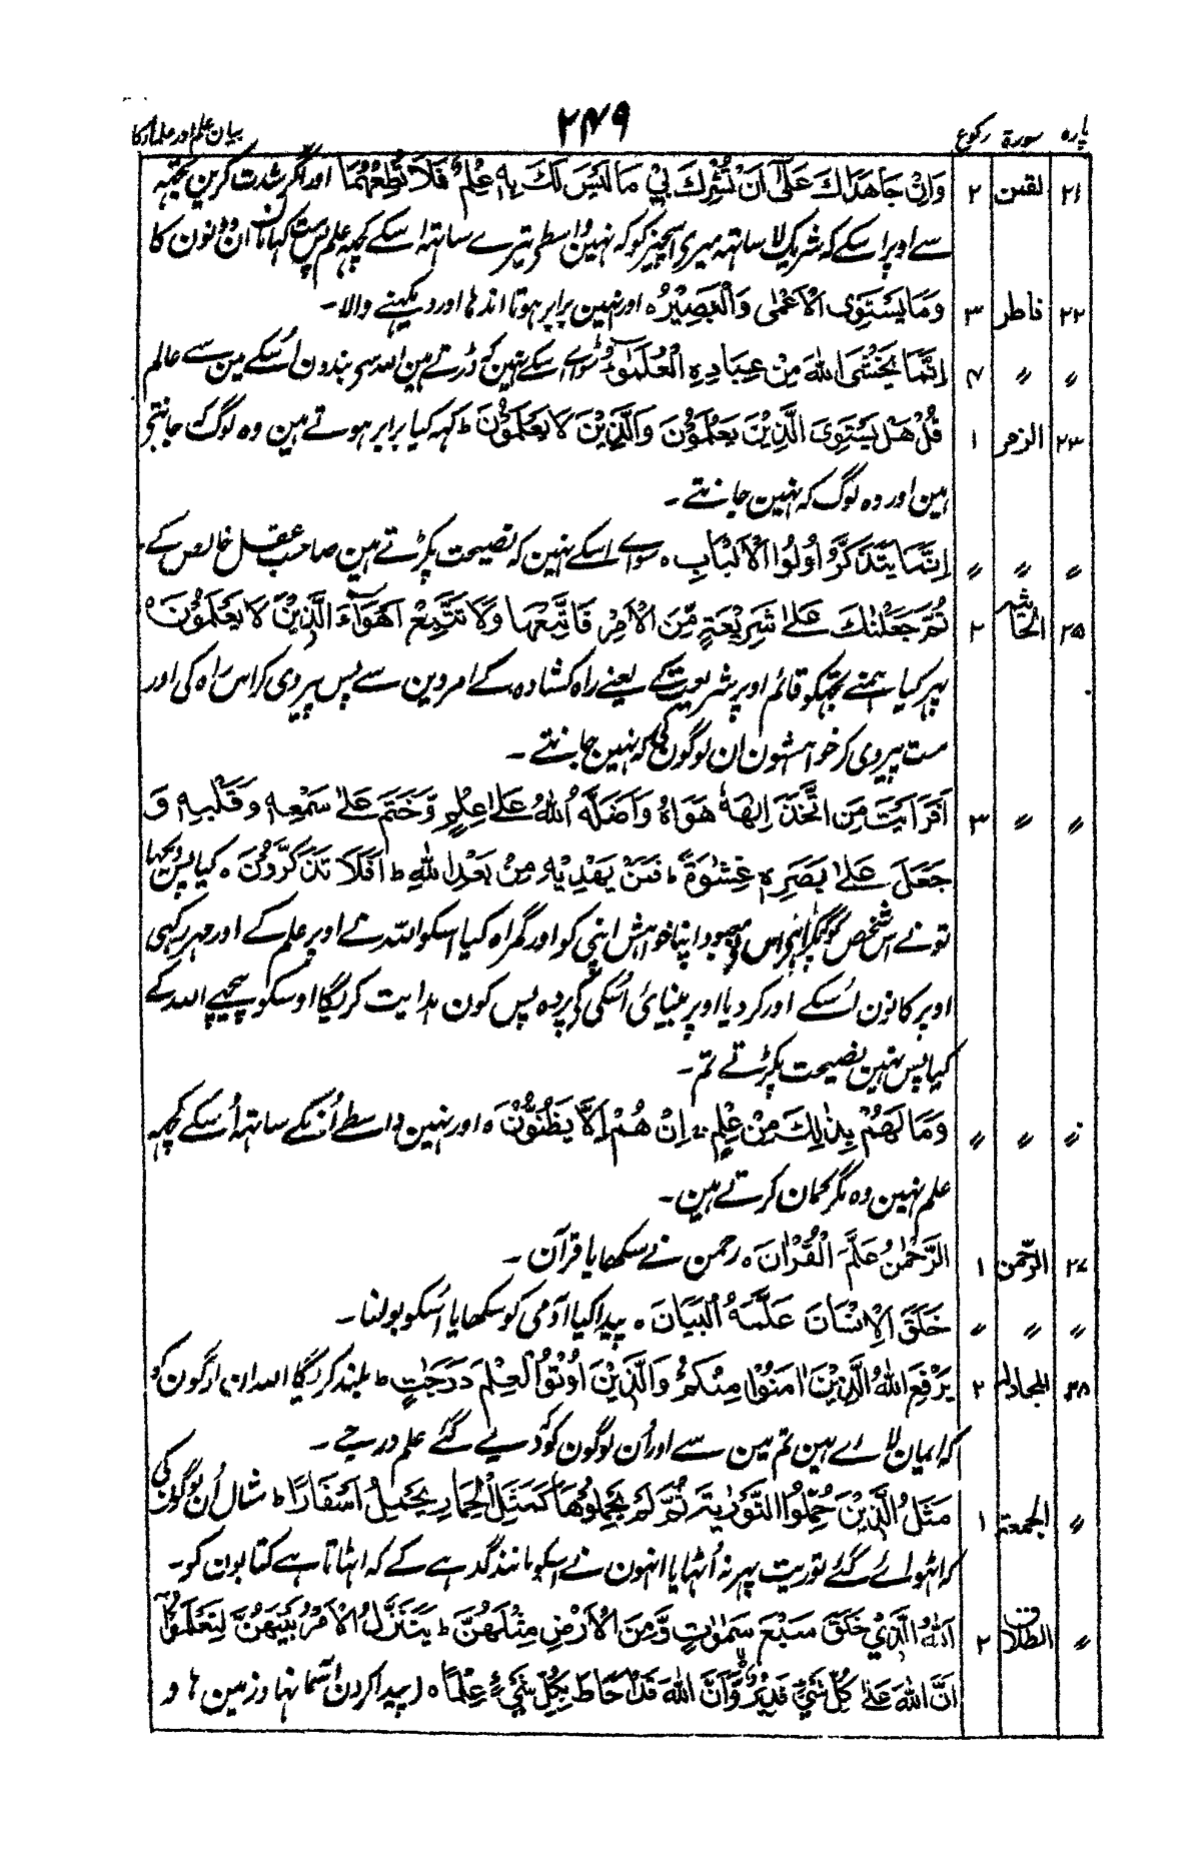 پارہ سورۃ رکوع ۲۴۹ بیان علم اور علماء کا
۲۱ لقمٰن ۲ وَاِنْ جَاهَدَاكَ عَلٰٓى اَنْ تُشْرِكَ بِيْ مَا لَيْسَ لَكَ بِهٖ عِلْمٌ فَلَا تُطِعْهُمَا اور اگر شدت کرین تجھہ
سے اوپر اسکے کہ شریک لا ساتھہ میری اسچیز کو کہ نہین واسطی تیرے ساتھہ اسکے کچھہ علم پس مت کہا مان ان دونون کا
۲۲ فاطر ۳ وَمَا يَسْتَوِى الْاَعْمٰى وَالْبَصِيْرُ ہ اور نہین برابر ہوتا اندھا اور دیکھنے والا۔
〃 〃 ۴ اِنَّمَا يَخْشَى اللّٰهَ مِنْ عِبَادِهِ الْعُلَمٰٓؤُ سواے اسکے نہین کہ ڈرتے ہین اللہ سی بندون اُسکے مین سے عالم
۲۳ الزمر ۱ قُلْ هَلْ يَسْتَوِى الَّذِيْنَ يَعْلَمُوْنَ وَالَّذِيْنَ لَا يَعْلَمُوْنَ ط کہہ کیا برابر ہوتے ہین وہ لوگ کہ جانتی
ہین اور وہ لوگ کہ نہین جانتے۔
〃 〃 〃 اِنَّمَا يَتَذَكَّرُ اُولُوا الْاَلْبَابِ ہ سواے اسکے نہین کہ نصیحت پکڑتے ہین صاحب عقل خالص کے
۲۵ الجاثیہ ۲ ثُمَّ جَعَلْنٰكَ عَلٰى شَرِيْعَةٍ مِّنَ الْاَمْرِ فَاتَّبِعْهَا وَلَا تَتَّبِعْ اَهْوَآءَ الَّذِيْنَ لَا يَعْلَمُوْنَ ہ
پہر کیا ہمنے تجھکو قائم اوپر شریعت کے یعنے راہ کشادہ کے امر دین سے پس پیروی کر اس راہ کی اور
مت پیروی کر خواہشون ان لوگون کی کہ نہین جانتے۔
〃 〃 ۳ اَفَرَاَيْتَ مَنِ اتَّخَذَ اِلٰهَهٗ هَوَاهُ وَاَضَلَّهُ اللّٰهُ عَلٰى عِلْمٍ وَّخَتَمَ عَلٰى سَمْعِهٖ وَقَلْبِهٖ وَ
جَعَلَ عَلٰى بَصَرِهٖ غِشٰوَةً ط فَمَنْ يَهْدِيْهِ مِنْ بَعْدِ اللّٰهِ ط اَفَلَا تَذَكَّرُوْنَ ہ کیا پس دیکھا
تونے اس شخص کو پکڑا معبود اپنا خواہش اپنی کو اور گمراہ کیا اسکو اللہ نے اوپر علم کے اور مہر رکھی
اوپر کانون اُسکے اور کردیا اوپر بینائی اُسکی کے پردہ پس کون ہدایت کریگا اوسکو پیچھے اللہ کے
کیا پس نہین نصیحت پکڑتے تم۔
〃 〃 〃 وَمَا لَهُمْ بِذٰلِكَ مِنْ عِلْمٍ اِنْ هُمْ اِلَّا يَظُنُّوْنَ ہ اور نہین واسطے اُنکے ساتھہ اُسکے کچھہ
علم نہین وہ مگر گمان کرتے ہین۔
۲۷ الرحمٰن ۱ الرَّحْمٰنُ عَلَّمَ الْقُرْاٰنَ ہ رحمن نے سکھایا قرآن۔
〃 〃 〃 خَلَقَ الْاِنْسَانَ عَلَّمَهُ الْبَيَانَ ہ پیدا کیا آدمی کو سکھایا اُسکو بولنا۔
۲۸ المجادلہ ۲ يَرْفَعِ اللّٰهُ الَّذِيْنَ اٰمَنُوْا مِنْكُمْ وَالَّذِيْنَ اُوْتُوا الْعِلْمَ دَرَجٰتٍ ط بلند کریگا اللہ ان لوگون کو
کہ ایمان لاے ہین تم مین سے اور اُن لوگون کو دیے گئے علم درجے۔
〃 الجمعۃ ۱ مَثَلُ الَّذِيْنَ حُمِّلُوا التَّوْرٰىةَ ثُمَّ لَمْ يَحْمِلُوْهَا كَمَثَلِ الْحِمَارِ يَحْمِلُ اَسْفَارًا ط مثال اُن لوگون کی
کہ اٹھواے گئے توریت پہر نہ اُٹھایا انہون نے اسکو مانند گدہے کے کہ اٹھاتا ہے کتابون کو۔
〃 الطلاق ۲ اَللّٰهُ الَّذِيْ خَلَقَ سَبْعَ سَمٰوٰتٍ وَّمِنَ الْاَرْضِ مِثْلَهُنَّ ط يَتَنَزَّلُ الْاَمْرُ بَيْنَهُنَّ لِتَعْلَمُوْٓا
اَنَّ اللّٰهَ عَلٰى كُلِّ شَيْءٍ قَدِيْرٌ وَّاَنَّ اللّٰهَ قَدْ اَحَاطَ بِكُلِّ شَيْءٍ عِلْمًا ہ (پیدا کردن آسمانہا و زمین ہا و